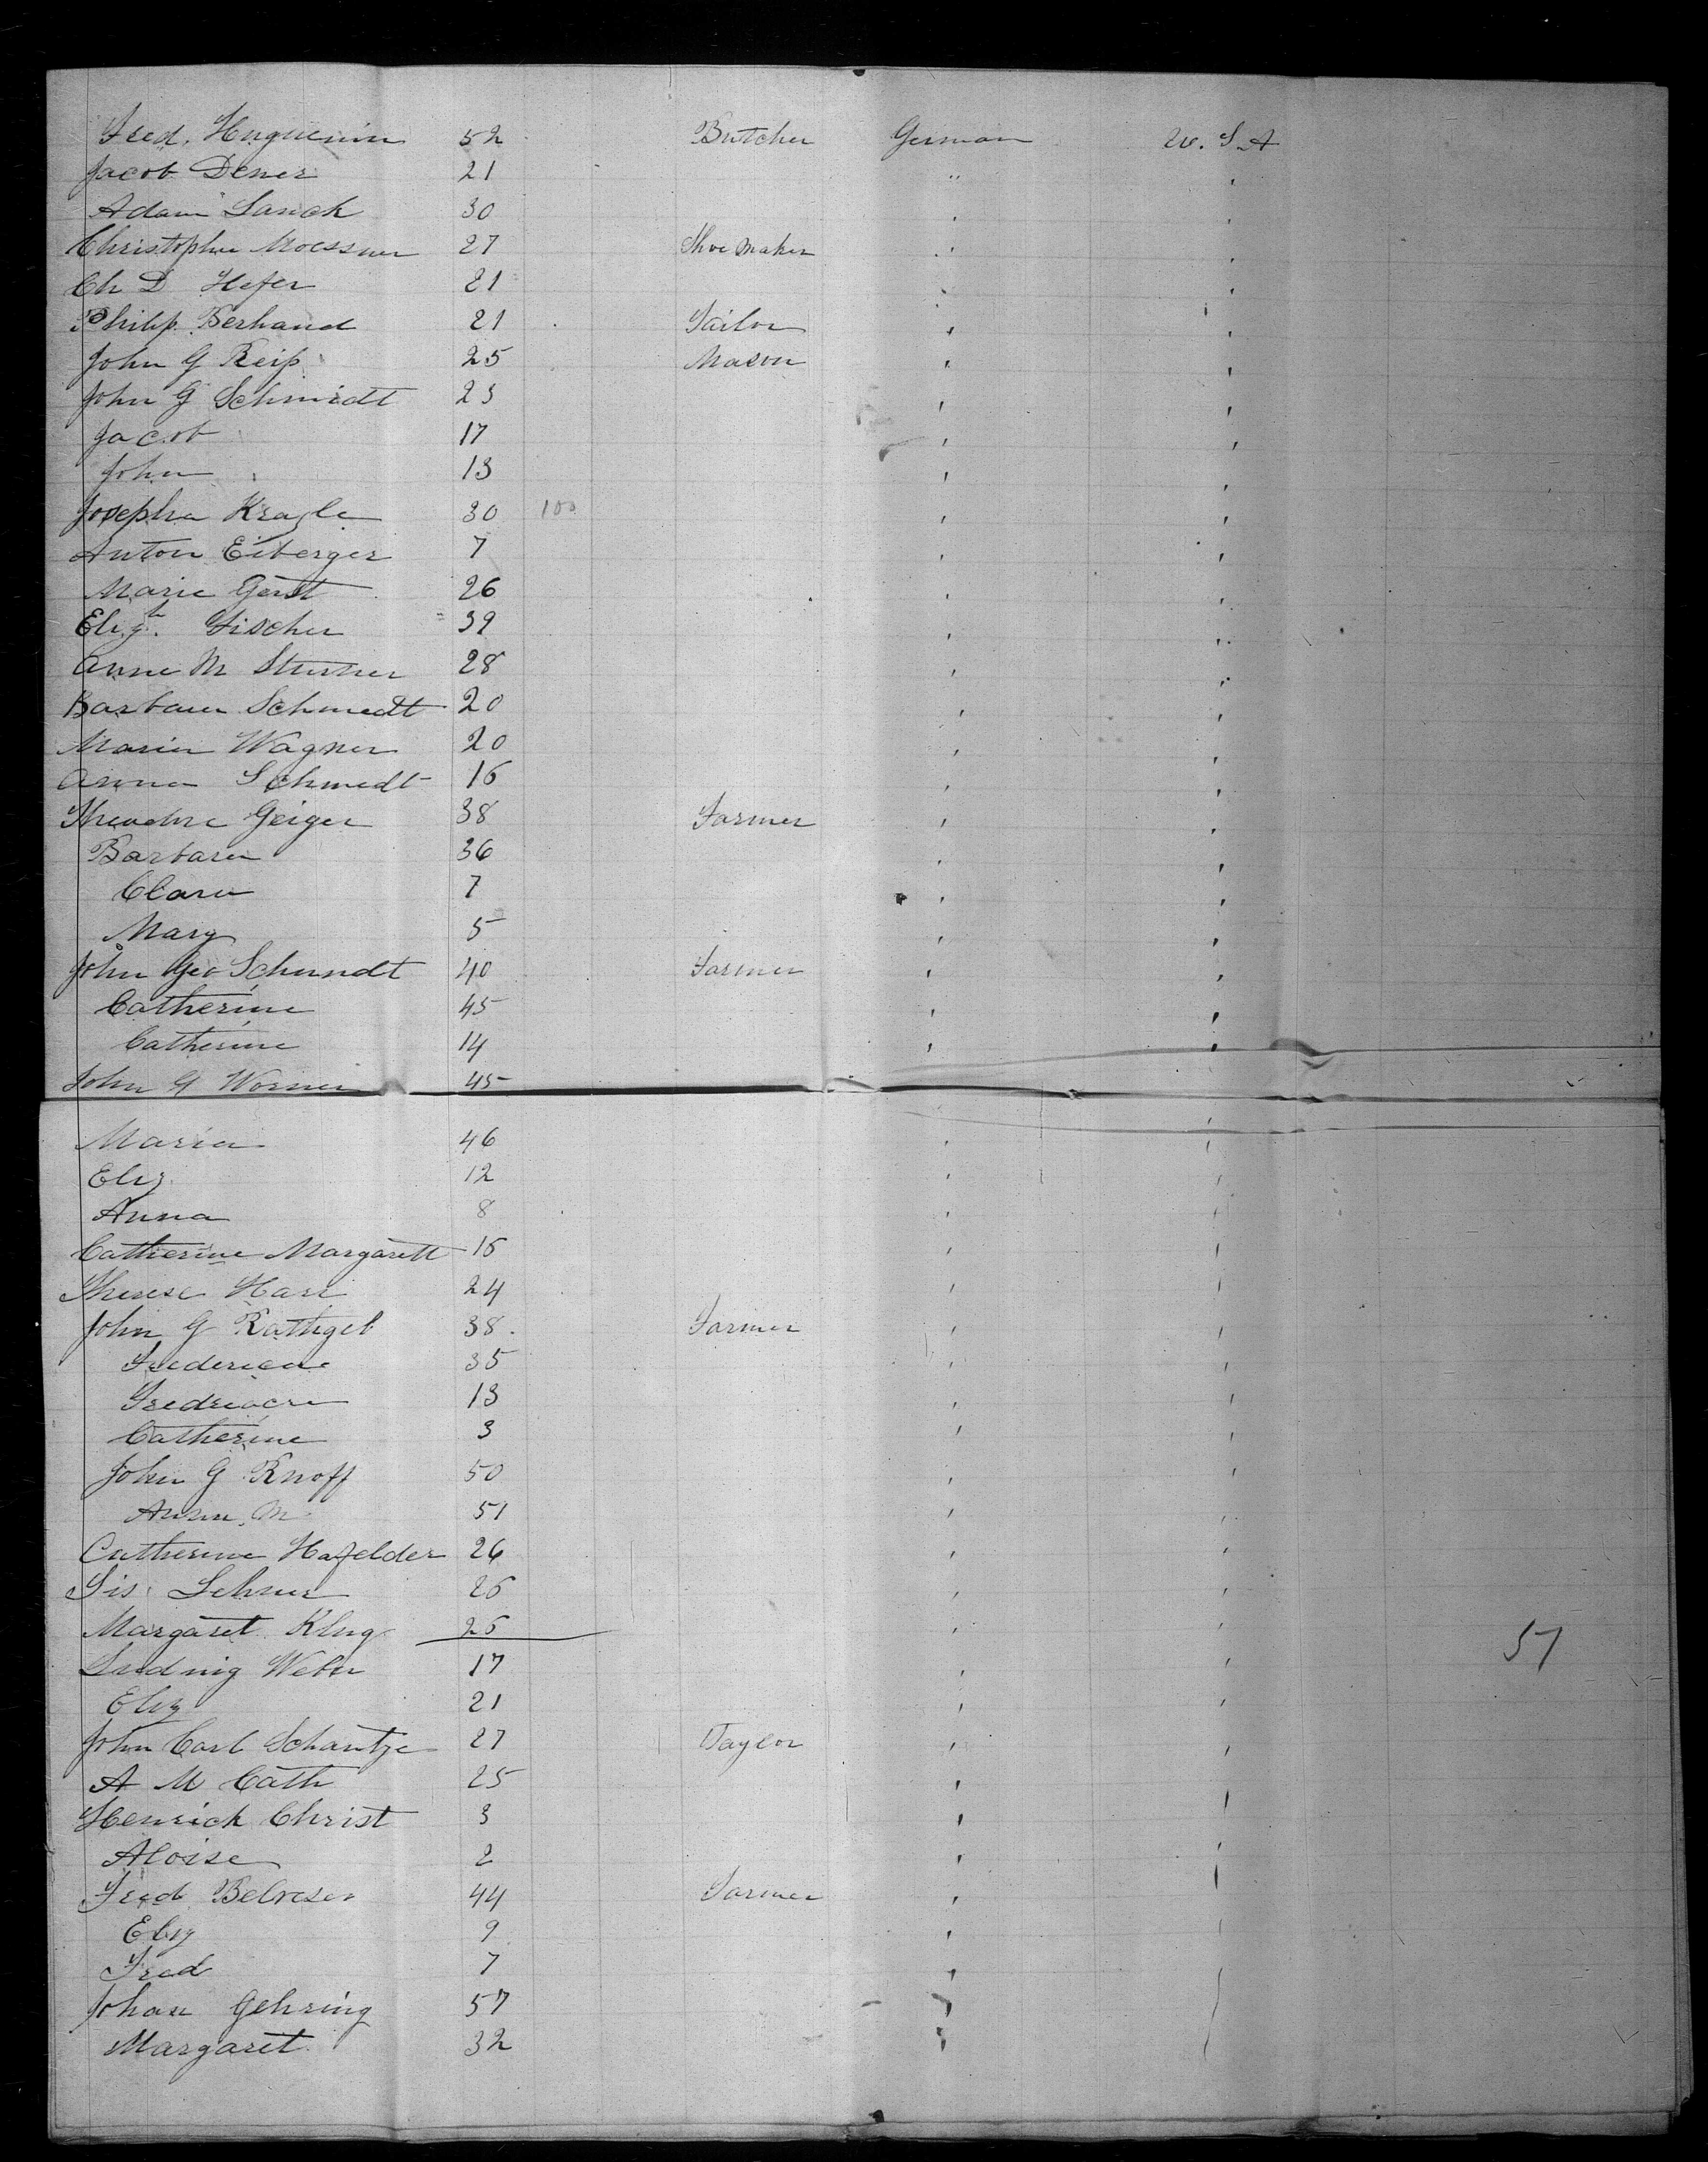 Fred. Huguenin 52 Butcher German U. S. A
Jacob Dener 21 " '
Adam Lanck 30 ' '
Christopher Moessner 27 Shoe Maker ' '
Ch D Hefer 21 ' '
Philip Berhand 21 Tailor ' '
John G Reiß 25 Mason ' '
John G Schmidt 23 ' '
Jacob 17 ' '
John 13 ' '
Josepha Kragle 30 100 ' '
Anton Eiberger 7 ' '
Marie Gerst 26 ' '
Eliz.h Fischer 39 ' '
Anne M 28 ' '
Barbara Schmedt 20 ' '
Maria Wagner 20 ' '
Anna Schmedt 16 ' '
Theodore Geiger 38 Farmer ' '
Barbara 36 ' '
Clara 7 ' '
Mary 5 ' '
John Geo Schmidt 40 Farmer ' '
Catherine 45 ' '
Catherine 14 ' '
John G Worner 45
Maria 46 ' '
Eliz 12 ' '
Anna 8 ' '
Catherine Margarett 16 ' '
Therese Harl 24 ' '
John G Rathgeb 38 Farmer ' '
35 ' '
13 ' '
Catherine 3 ' '
John G Knoff 50 ' '
Anna M 51 ' '
Catherine Hafelder 26 ' '
Lehner 26 ' '
Margaret Klug 26 ' '
57
Ludwig Weber 17 ' '
Eliz 21 ' '
John Carl Schantze 27 Taylor ' '
A M Cath 25 ' '
Henrick Christ 3 ' '
Aloise 2 ' '
Fred 44 Farmer ' '
Eliz 9 '
Fred 7 '
Johan Gehring 57 '
Margaret 32 '